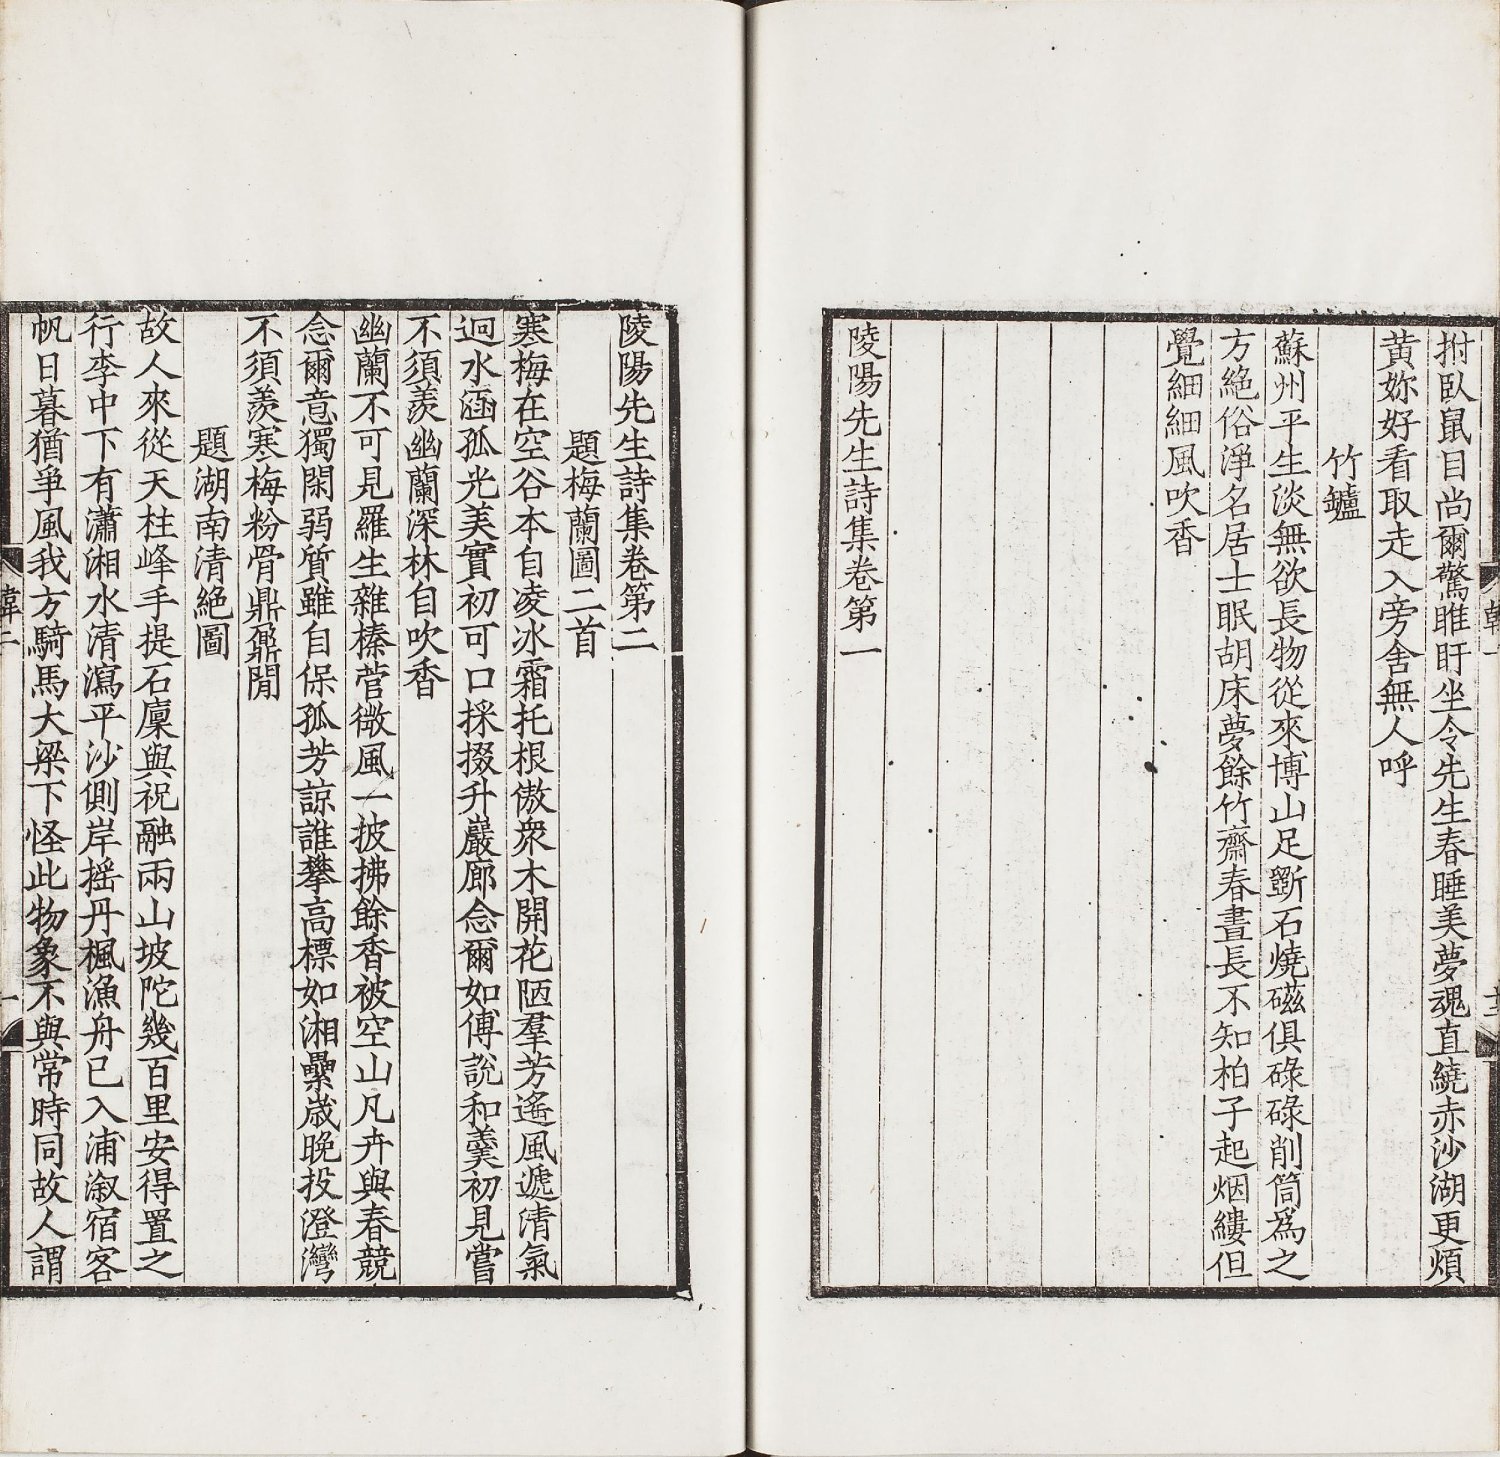 拊臥鼠目尚爾驚睢盱坐令先生春睡美夢魂直繞赤沙湖更煩
黄妳好看取走入旁舍無人呼
竹鑪
蘇州平生淡無欲長物從來博山足斵石燒磁俱碌碌削筒爲之
方絶俗淨名居士眠胡床夢餘竹齋春晝長不知柏子起烟縷但
覺細細風吹香
陵陽先生詩集卷第一
陵陽先生詩集卷第二
題梅蘭圖二首
寒梅在空谷本自凌冰霜托根傲衆木開花陋羣芳遙風遞清氣
迥水涵孤光美實初可口採掇升巖廊念爾如傅說和羹初見嘗
不須羨幽蘭深林自吹香
幽蘭不可見羅生雜榛菅微風一披拂餘香被空山凡卉與春競
念爾意獨閑弱質雖自保孤芳諒誰攀高標如湘纍歲晚投澄灣
不須羨寒梅粉骨鼎鼐間
題湖南清絶圖
故人來從天柱峰手提石廩與祝融兩山坡陀幾百里安得置之
行李中下有瀟湘水清瀉平沙側岸摇丹楓漁舟已入浦溆宿客
帆日暮猶爭風我方騎馬大梁下怪此物象不與常時同故人謂